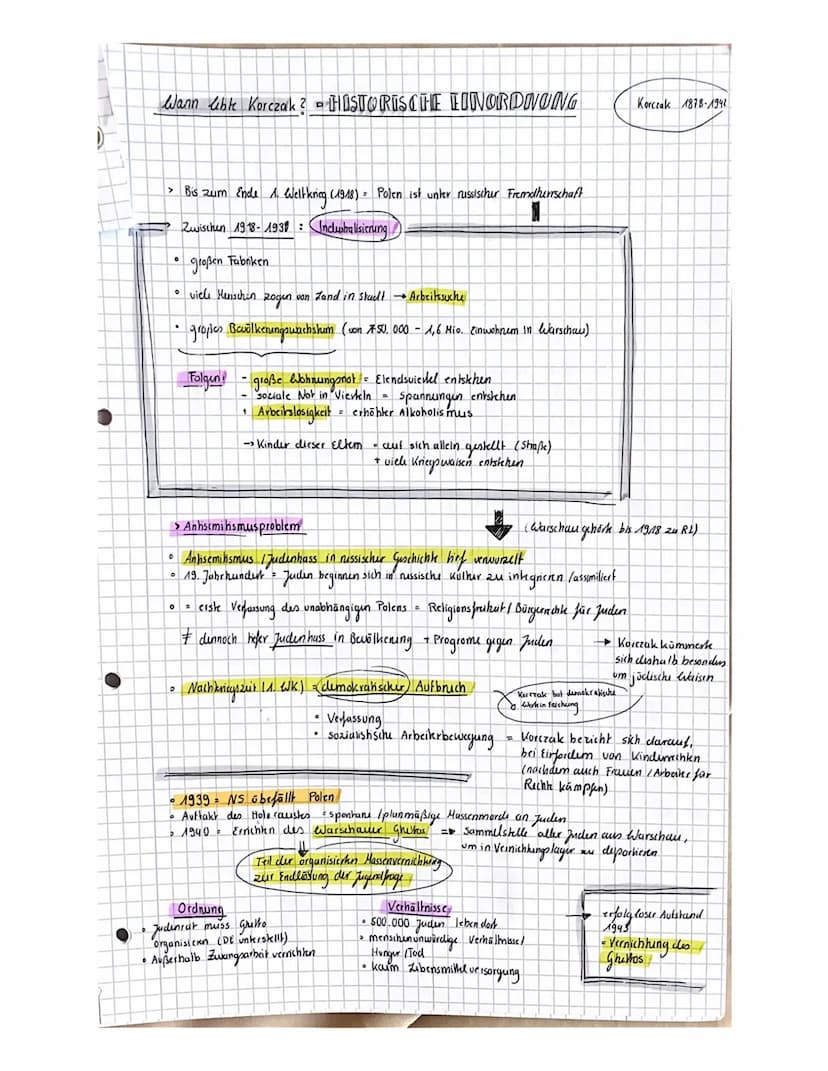 Wann lebte Korczak? = HISTORISCHE EINORDNUNG
Korczak 1878-1942
> Bis zum Ende 1. Weltkrieg (1918) = Polen ist unter russischer Fremdherrschaft
Zwischen 1918-1939 : Industrialisierung
• großen Fabriken
• viele Menschen zogen von Land in Stadt → Arbeitssuche
• großes Bevölkerungswachstum (von 750.000 - 1,6 Mio. Einwohnern in Warschau)
Folgen: - große Wohnungsnot = Elendsviertel entstehen
- soziale Not in Vierteln = Spannungen entstehen
+ Arbeitslosigkeit = erhöhter Alkoholismus
→ Kinder dieser Eltern = auf sich allein gestellt (Straße)
+ viele Kriegswaisen entstehen
> Antisemitismusproblem
(Warschau gehörte bis 1918 zu RL)
• Antisemitismus / Judenhass in russischer Geschichte tief verwurzelt
• 19. Jahrhundert = Juden beginnen sich in russische Kultur zu integrieren / assimiliert
• = erste Verfassung des unabhängigen Polens = Religionsfreiheit / Bürgerrechte für Juden
≠ dennoch tiefer Judenhass in Bevölkerung + Programe gegen Juden
→ Korczak kümmerte
sich deshalb besonders
um jüdische Waisen
• Nachkriegszeit (1. WK) = demokratischer Aufbruch
Korczak hat demokratische
Werte in Erziehung
• Verfassung
• sozialistische Arbeiterbewegung = Korczak bezieht sich darauf,
bei Einfordern von Kinderrechten
(nachdem auch Frauen / Arbeiter für
Rechte kämpfen)
• 1939 = NS überfällt Polen
• Auftakt des Holocaustes = spontane / planmäßige Massenmorde an Juden
• 1940 = Errichten des Warschauer Ghettos => Sammelstelle aller Juden aus Warschau,
um in Vernichtungslager zu deportieren
Teil der organisierten Massenvernichtung
zur Endlösung der Jugendfrage
Ordnung
• Judenrat muss Ghetto
organisieren (DE unterstellt)
• Außerhalb Zwangsarbeit verrichten
Verhältnisse
• 500.000 Juden leben dort
• menschenunwürdige Verhältnisse /
Hunger / Tod
• kaum Lebensmittelversorgung
→ erfolgloser Aufstand
1943
= Vernichtung des
Ghettos